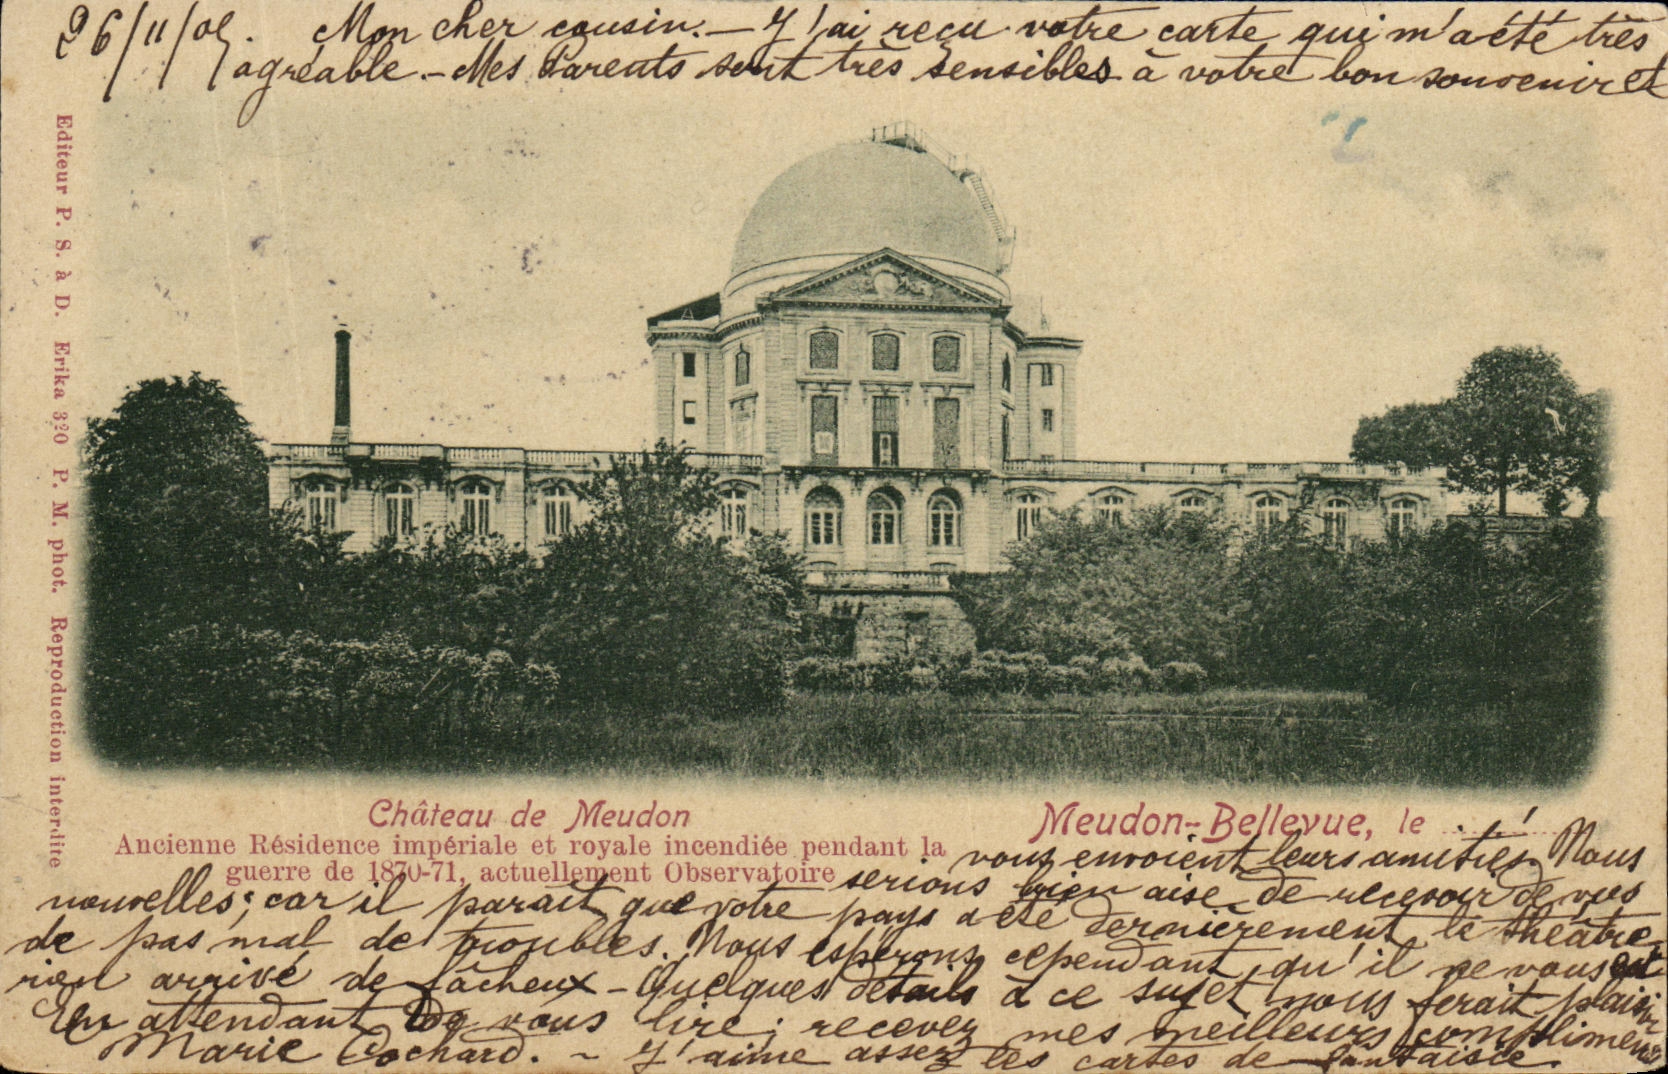 26/11/05. Mon cher cousin. — J'ai reçu votre carte qui m'a été très
agréable. — Mes Parents sont très sensibles à votre bon souvenir et
Editeur P. S. à D. Erika 320 P. M. phot. Reproduction interdite
Château de Meudon
Ancienne Résidence impériale et royale incendiée pendant la
guerre de 1870-71, actuellement Observatoire
Meudon-Bellevue, le
vous envoient leurs amitiés. Nous
serions bien aise de recevoir de vos
nouvelles; car il parait que votre pays a été dernièrement le théâtre
de pas mal de troubles. Nous espérons cependant, qu'il ne vous est
rien arrivé de fâcheux — Quelques détails à ce sujet nous ferait plaisir
En attendant de vous lire; recevez mes meilleurs compliments
Marie Cochard. — J'aime assez les cartes de fantaisie.